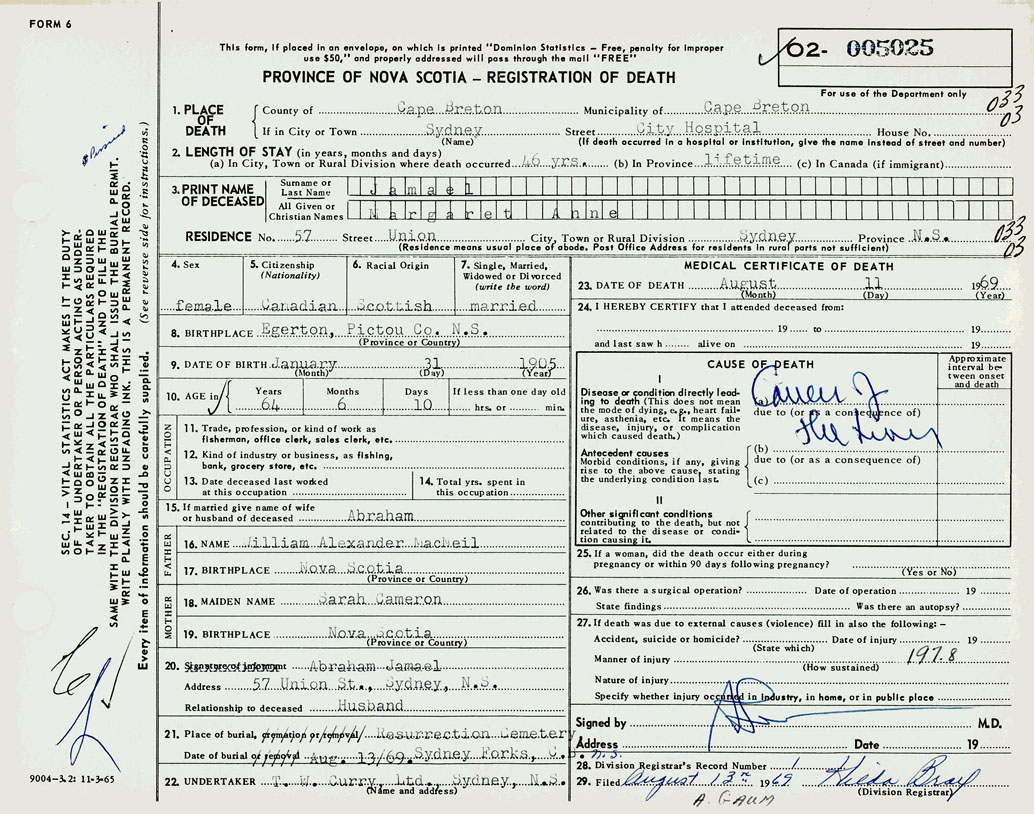 FORM 6
This form, if placed in an envelope, on which is printed "Dominion Statistics – Free, penalty for improper
use $50," and properly addressed will pass through the mail "FREE"
PROVINCE OF NOVA SCOTIA – REGISTRATION OF DEATH
02- 005025
For use of the Department only
033
03
1. PLACE OF DEATH
County of Cape Breton Municipality of Cape Breton
If in City or Town Sydney Street City Hospital House No.
(Name) (If death occurred in a hospital or institution, give the name instead of street and number)
2. LENGTH OF STAY (in years, months and days)
(a) In City, Town or Rural Division where death occurred 46 yrs. (b) In Province lifetime (c) In Canada (if immigrant)
3. PRINT NAME OF DECEASED
Surname or Last Name Jamael
All Given or Christian Names Margaret Anne
RESIDENCE No. 57 Street Union City, Town or Rural Division Sydney Province N.S.
(Residence means usual place of abode. Post Office Address for residents in rural parts not sufficient)
033
03
4. Sex
female
5. Citizenship
(Nationality)
Canadian
6. Racial Origin
Scottish
7. Single, Married,
Widowed or Divorced
(write the word)
married
8. BIRTHPLACE Egerton, Pictou Co. N.S.
(Province or Country)
9. DATE OF BIRTH January 31 1905
(Month) (Day) (Year)
10. AGE in
Years Months Days If less than one day old
64 6 10 hrs. or min.
OCCUPATION
11. Trade, profession, or kind of work as
fisherman, office clerk, sales clerk, etc.
12. Kind of industry or business, as fishing,
bank, grocery store, etc.
13. Date deceased last worked
at this occupation
14. Total yrs. spent in
this occupation
15. If married give name of wife
or husband of deceased Abraham
FATHER
16. NAME William Alexander MacNeil
17. BIRTHPLACE Nova Scotia
(Province or Country)
MOTHER
18. MAIDEN NAME Sarah Cameron
19. BIRTHPLACE Nova Scotia
(Province or Country)
20. Signature of informant Abraham Jamael
Address 57 Union St., Sydney, N.S.
Relationship to deceased Husband
21. Place of burial, cremation or removal Resurrection Cemetery
Date of burial or removal Aug. 13/69. Sydney Forks, C.B. N.S.
22. UNDERTAKER T. W. Curry, Ltd., Sydney, N.S.
(Name and address)
MEDICAL CERTIFICATE OF DEATH
23. DATE OF DEATH August 11 1969
(Month) (Day) (Year)
24. I HEREBY CERTIFY that I attended deceased from:
19 to 19
and last saw h alive on 19
CAUSE OF DEATH
Approximate
interval be-
tween onset
and death
I
Disease or condition directly lead-
ing to death (This does not mean
the mode of dying, e.g., heart fail-
ure, asthenia, etc. It means the
disease, injury, or complication
which caused death.)
(a) Cancer of
due to (or as a consequence of)
the Liver
Antecedent causes
Morbid conditions, if any, giving
rise to the above cause, stating
the underlying condition last.
(b)
due to (or as a consequence of)
(c)
II
Other significant conditions
contributing to the death, but not
related to the disease or condi-
tion causing it.
25. If a woman, did the death occur either during
pregnancy or within 90 days following pregnancy?
(Yes or No)
26. Was there a surgical operation? Date of operation 19
State findings Was there an autopsy?
27. If death was due to external causes (violence) fill in also the following: –
Accident, suicide or homicide? Date of injury 19
(State which)
Manner of injury 197.8
(How sustained)
Nature of injury
Specify whether injury occurred in industry, in home, or in public place
Signed by M.D.
Address Date 19
28. Division Registrar's Record Number 1
29. Filed August 13th 1969 Hilda Bray
(Division Registrar)
A. GAUM
SEC. 14 – VITAL STATISTICS ACT MAKES IT THE DUTY
OF THE UNDERTAKER OR PERSON ACTING AS UNDER-
TAKER TO OBTAIN ALL THE PARTICULARS REQUIRED
IN THE "REGISTRATION OF DEATH" AND TO FILE THE
SAME WITH THE DIVISION REGISTRAR WHO SHALL ISSUE THE BURIAL PERMIT.
WRITE PLAINLY WITH UNFADING INK. THIS IS A PERMANENT RECORD.
Every item of information should be carefully supplied. (See reverse side for instructions.)
9004-3.2: 11-3-65